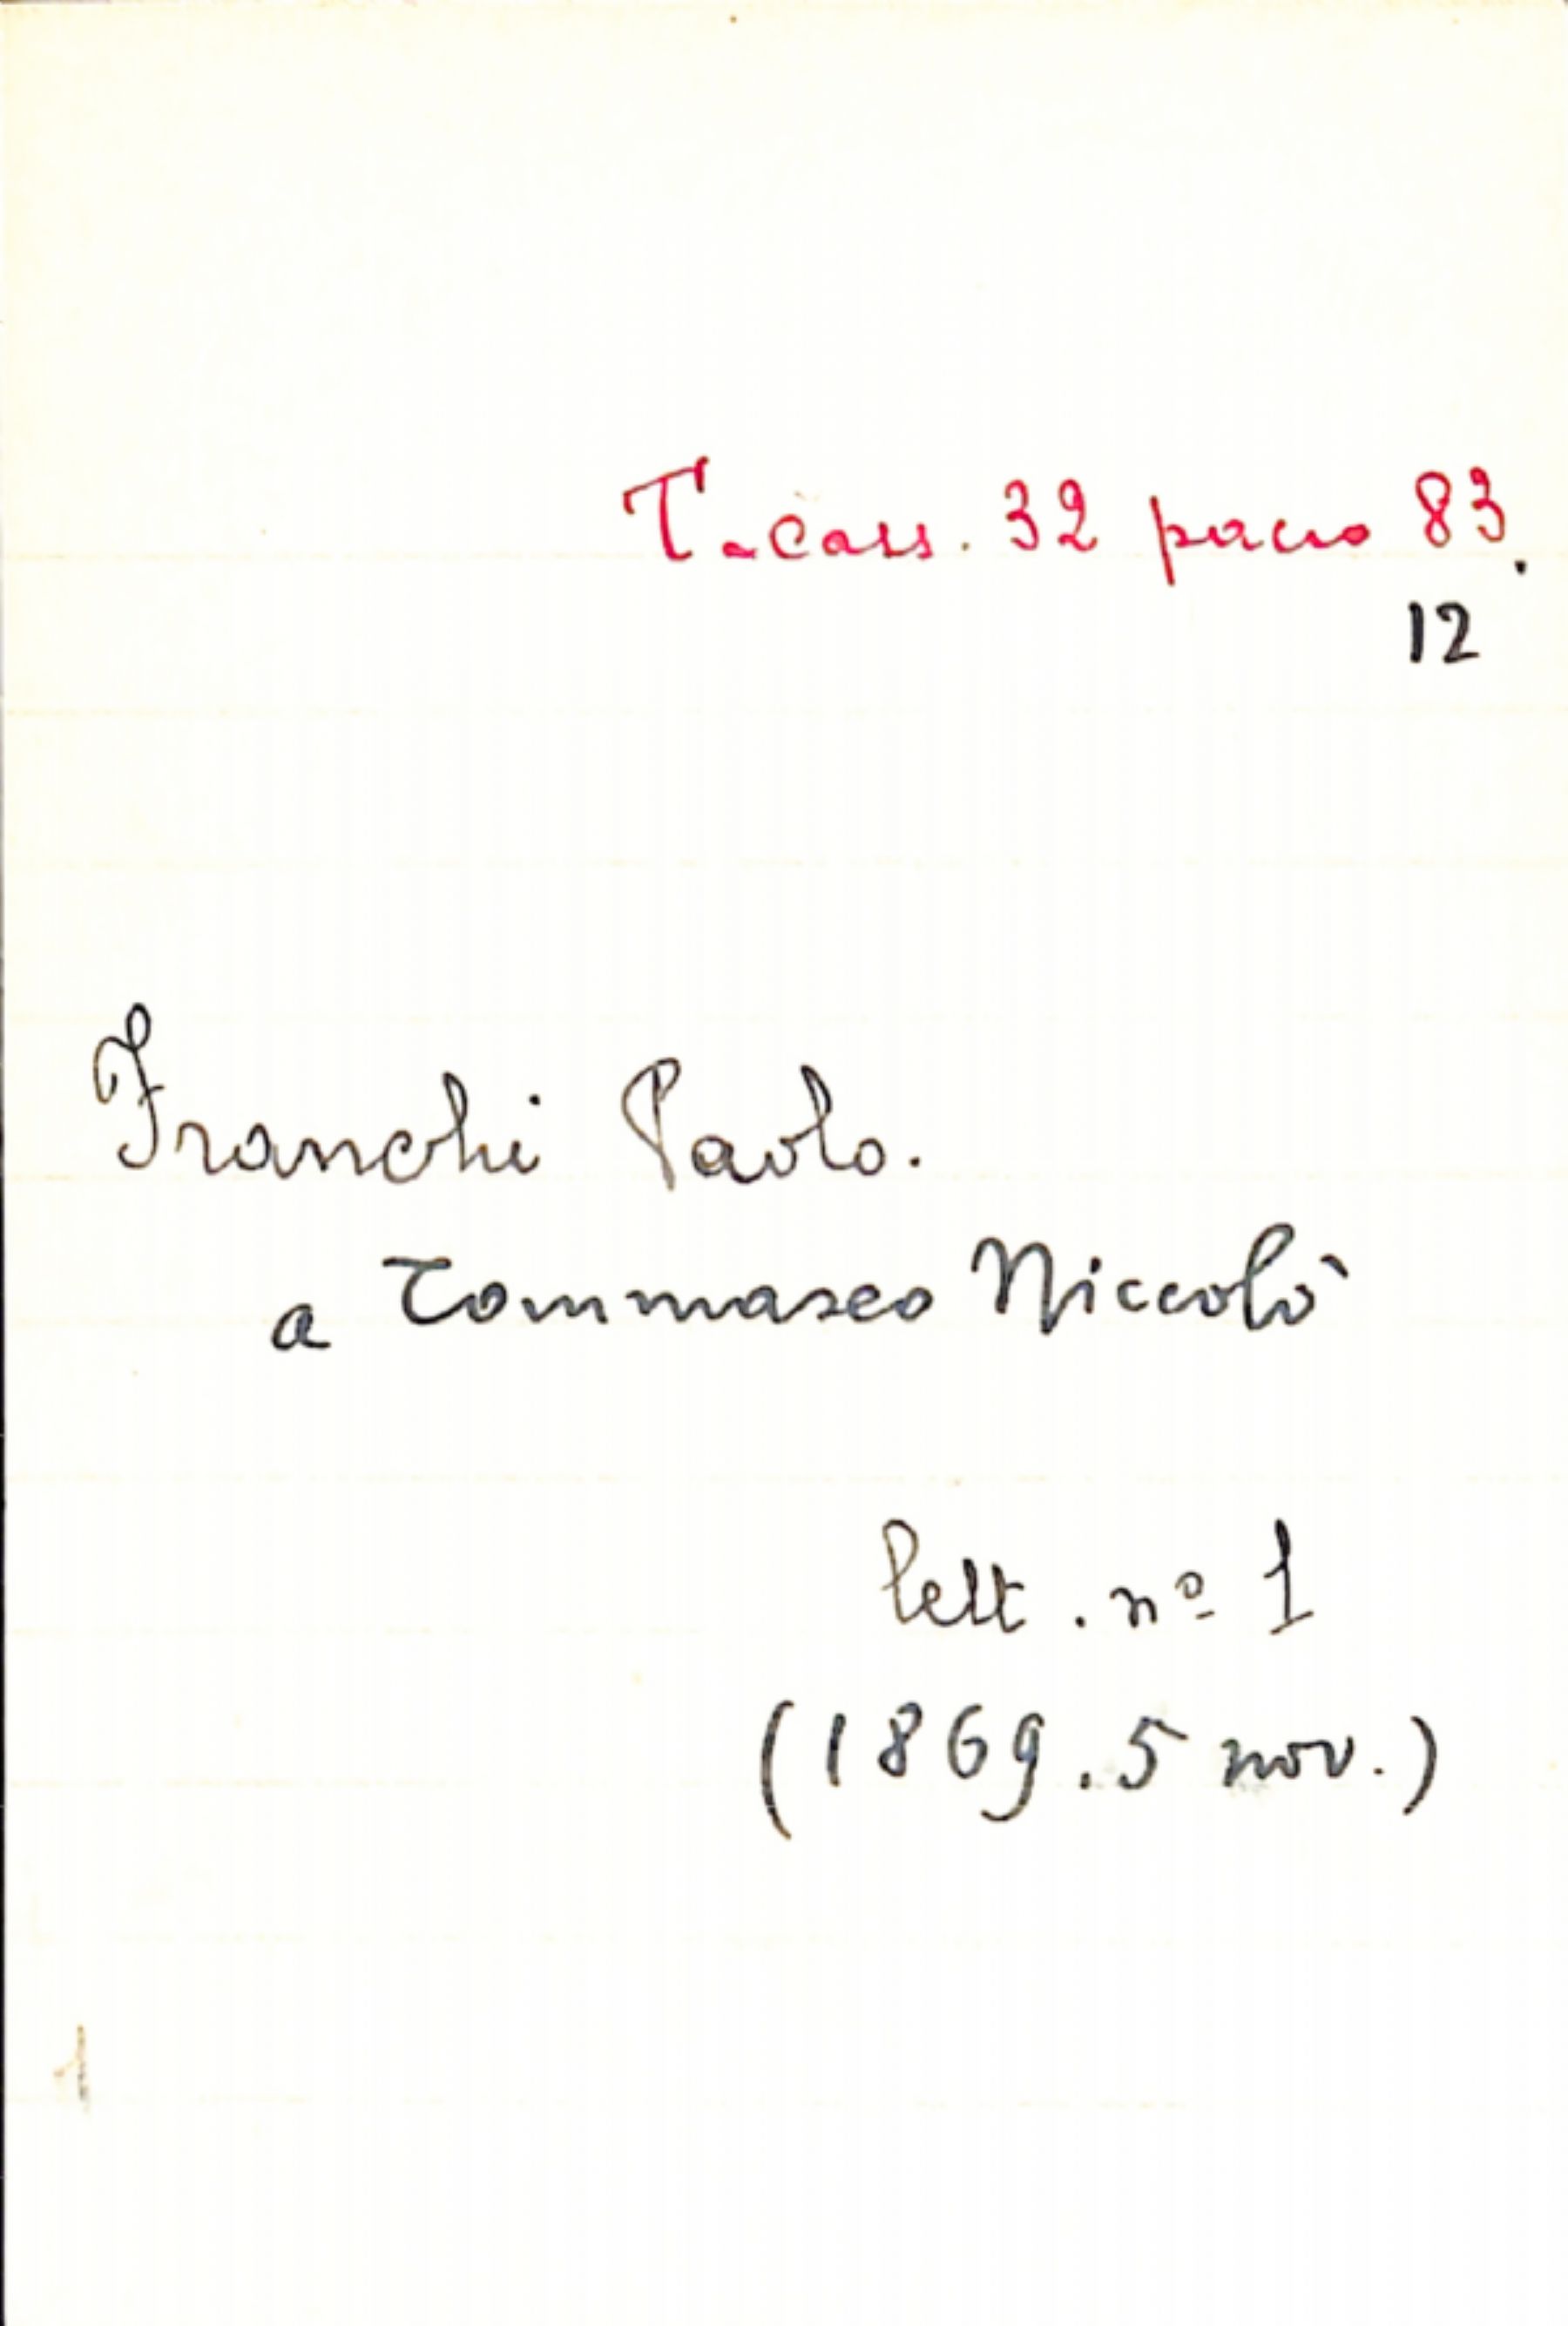 T. cass. 32 pacco 83.
12
Franchi Paolo.
a Tommaseo Niccolò
lett. nº 1
(1869. 5 nov.)
1